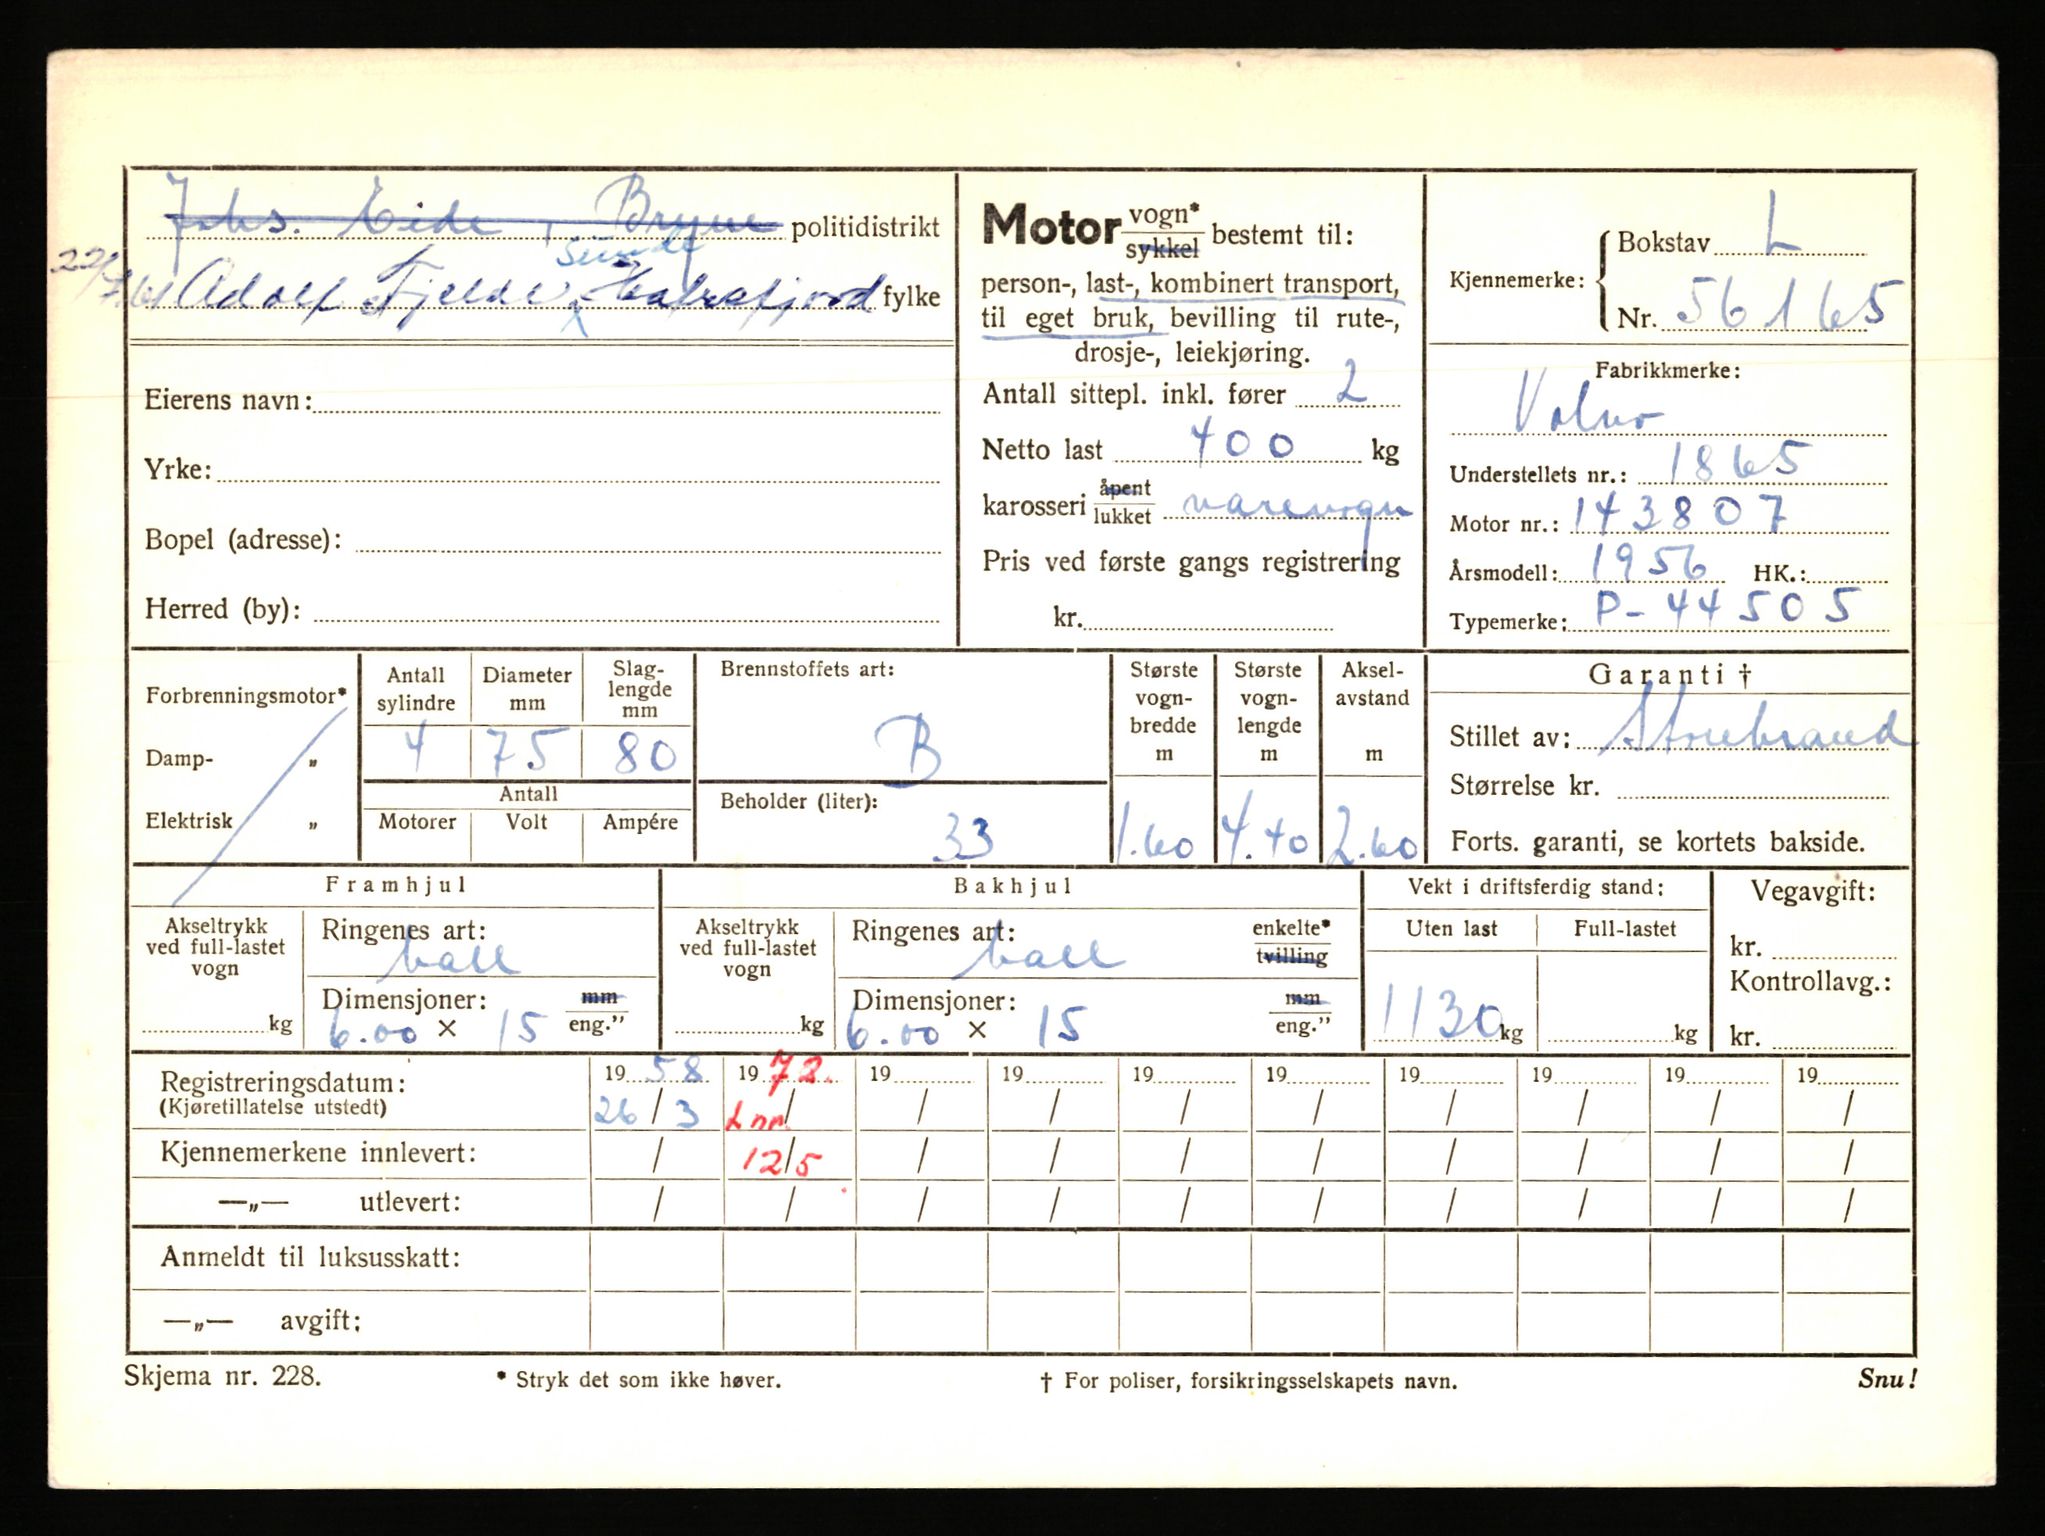 Johs. Eide, Bryne politidistrikt
Sunde
Adolf Fjelde, Hafrsfjord fylke
Eierens navn:
Yrke:
Bopel (adresse):
Herred (by):
Motor vogn* sykkel bestemt til:
person-, last-, kombinert transport,
til eget bruk, bevilling til rute-,
drosje-, leiekjøring.
Antall sittepl. inkl. fører 2
Netto last 400 kg
karosseri åpent lukket varevogn
Pris ved første gangs registrering
kr.
Kjennemerke: Bokstav L
Nr. 56165
Fabrikkmerke:
Volvo
Understellets nr.: 1865
Motor nr.: 143807
Årsmodell: 1956 HK.:
Typemerke: P-44505
Forbrenningsmotor*
Damp- „
Elektrisk „
Antall sylindre Diameter mm Slag-lengde mm
4 75 80
Antall
Motorer Volt Ampére
Brennstoffets art:
B
Beholder (liter):
33
Største vogn-bredde m
1.60
Største vogn-lengde m
4.40
Aksel-avstand m
2.60
Garanti †
Stillet av: Storebrand
Størrelse kr.
Forts. garanti, se kortets bakside.
Framhjul
Akseltrykk ved full-lastet vogn
kg
Ringenes art:
ball
Dimensjoner: mm
6.00 × 15 eng.”
Bakhjul
Akseltrykk ved full-lastet vogn
kg
Ringenes art: enkelte*
ball tvilling
Dimensjoner: mm
6.00 × 15 eng.”
Vekt i driftsferdig stand:
Uten last Full-lastet
1130 kg kg
Vegavgift:
kr.
Kontrollavg.:
kr.
Registreringsdatum: 19 58 19 72. 19 19 19 19 19 19 19 19
(Kjøretillatelse utstedt) 26/3 / / / / / / / / /
Kjennemerkene innlevert: / 12/5 / / / / / / / /
—„— utlevert: / / / / / / / / / /
Anmeldt til luksusskatt:
—„— avgift:
Skjema nr. 228. * Stryk det som ikke høver. † For poliser, forsikringsselskapets navn. Snu!